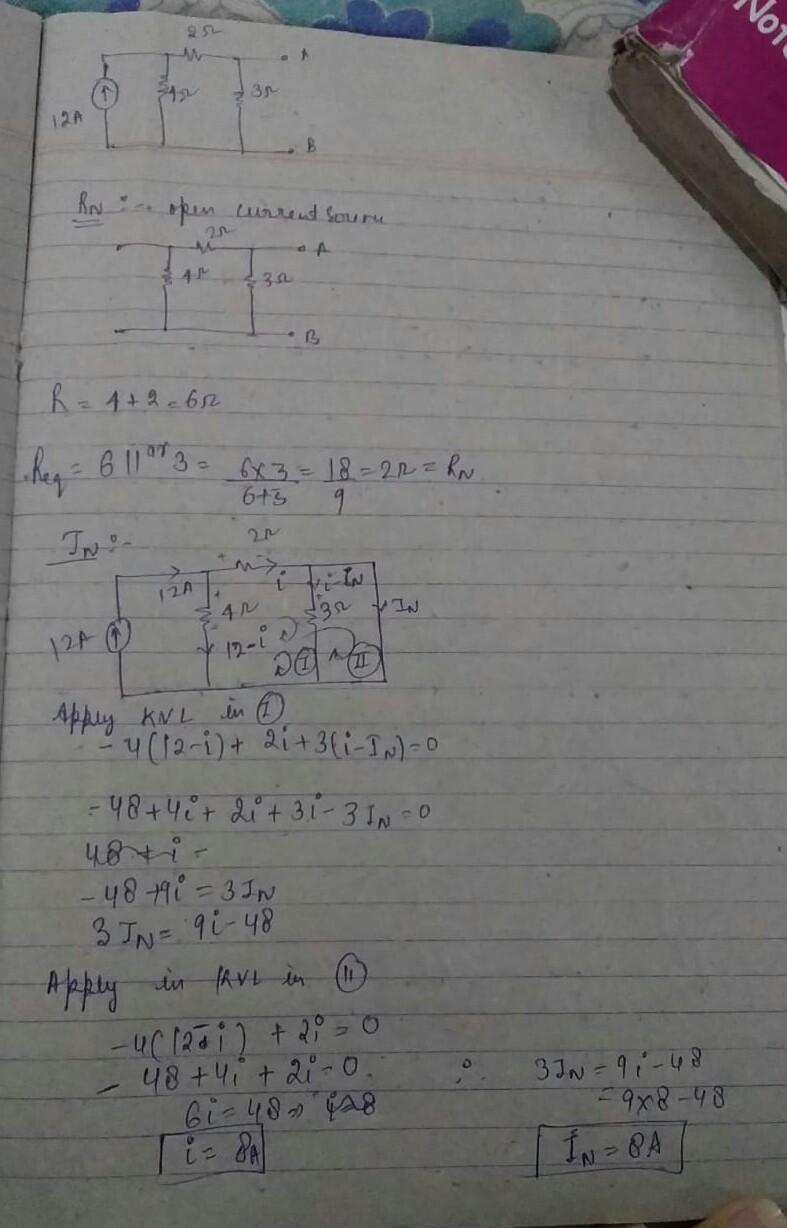 Note
2Ω
A
4Ω
3Ω
12A
B
RN :- open current source
2Ω
A
4Ω
3Ω
B
R = 4 + 2 = 6Ω
Req = 6 || 3 = 6×3/6+3 = 18/9 = 2Ω = RN
IN :-
2Ω
12A
i
i-IN
4Ω
3Ω
IN
12A
12-i
I
II
Apply KVL in I
-4(12-i) + 2i + 3(i-IN) = 0
-48 + 4i + 2i + 3i - 3IN = 0
48 + i =
-48 + 9i = 3IN
3IN = 9i - 48
Apply in KVL in II
-4(12-i) + 2i = 0
- 48 + 4i + 2i = 0. ∴ 3IN = 9i - 48
6i = 48 ⇒ i=8 = 9×8 - 48
i = 8A IN = 8A